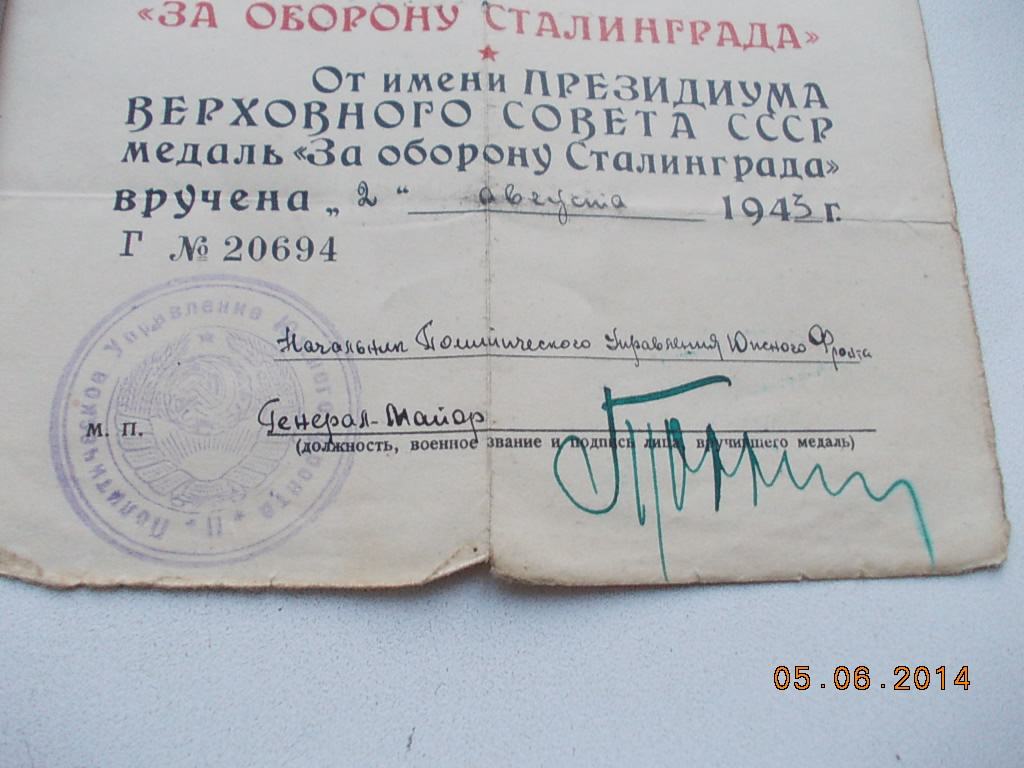 «ЗА ОБОРОНУ СТАЛИНГРАДА»
От имени ПРЕЗИДИУМА
ВЕРХОВНОГО СОВЕТА СССР
медаль «За оборону Сталинграда»
вручена „2“ августа 1943 г.
Г № 20694
Политическое Управление Южного Фронта
Начальник Политического Управления Южного Фронта
Генерал-Майор
м. п.
(должность, военное звание и подпись лица, вручившего медаль)
05.06.2014